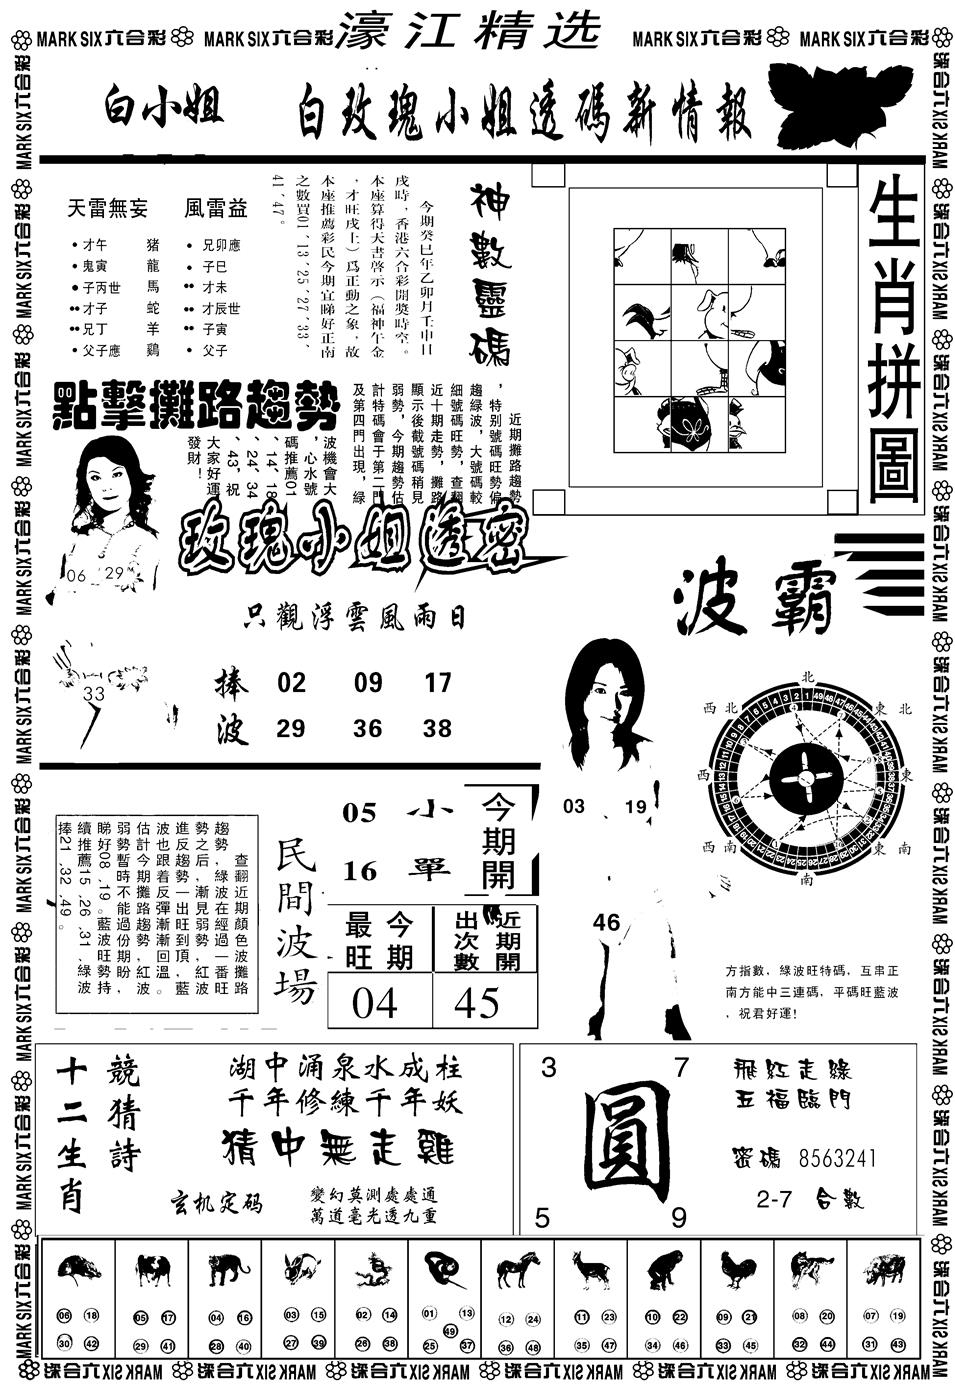 MARK SIX六合彩 MARK SIX六合彩 濠江精选 MARK SIX六合彩 MARK SIX六合彩
白小姐 白玫瑰小姐透碼新情報
天雷無妄
風雷益
才午 豬
鬼寅 龍
子丙世 馬
才子 蛇
兄丁 羊
父子應 鷄
兄卯應
子巳
才未
才辰世
子寅
父子
神數靈碼
今期癸巳年乙卯月壬申日
戌時，香港六合彩開獎時空。
本座算得天書啓示（福神午金
，才旺戌上）爲正動之象，故
本座推薦彩民今期宜睇好正南
之數買01、13、25、27、33、
41、47。
生肖拼圖
點擊攤路趨勢
近期攤路趨勢
，特别號碼旺勢偏
趨緑波，大號碼較
細號碼旺勢，查翻
近十期走勢，攤路
顯示後截號碼稍見
弱勢，今期趨勢估
計特碼會于第二門
及第四門出現，緑
波機會大
，心水號
碼推薦01
、14、18
、24、34
、43，祝
大家好運
發財！
06 29
33
玫瑰小姐透密
只觀浮雲風雨日
捧波
02 09 17
29 36 38
波霸
03 19
46
北
東北
東
東南
南
西南
西
西北
方指數，緑波旺特碼，互串正
南方能中三連碼，平碼旺藍波
，祝君好運！
查翻近期顔色波攤路
趨勢，緑波在經過一番旺
勢之后，漸見弱勢，紅波
進反趨勢一出旺到頂，藍
波也跟着反彈漸漸回温。
估計今期攤路趨勢紅波
弱勢暫時不能過份期盼，
睇好08、19。藍波旺勢持
續推薦15、26、31、緑波
捧21、32、49。
民間波場
05 小
16 單
今期開
今期最旺
近期開出次數
04 45
競猜詩
十二生肖
湖中涌泉水成柱
千年修練千年妖
猜中無走雞
玄机定码
變幻莫測處處通
萬道毫光透九重
3 7
圓
5 9
飛紅走緑
五福臨門
密碼 8563241
2-7 合數
06 18 30 42
05 17 29 41
04 16 28 40
03 15 27 39
02 14 26 38
01 13 49 25 37
12 24 36 48
11 23 35 47
10 22 34 46
09 21 33 45
08 20 32 44
07 19 31 43